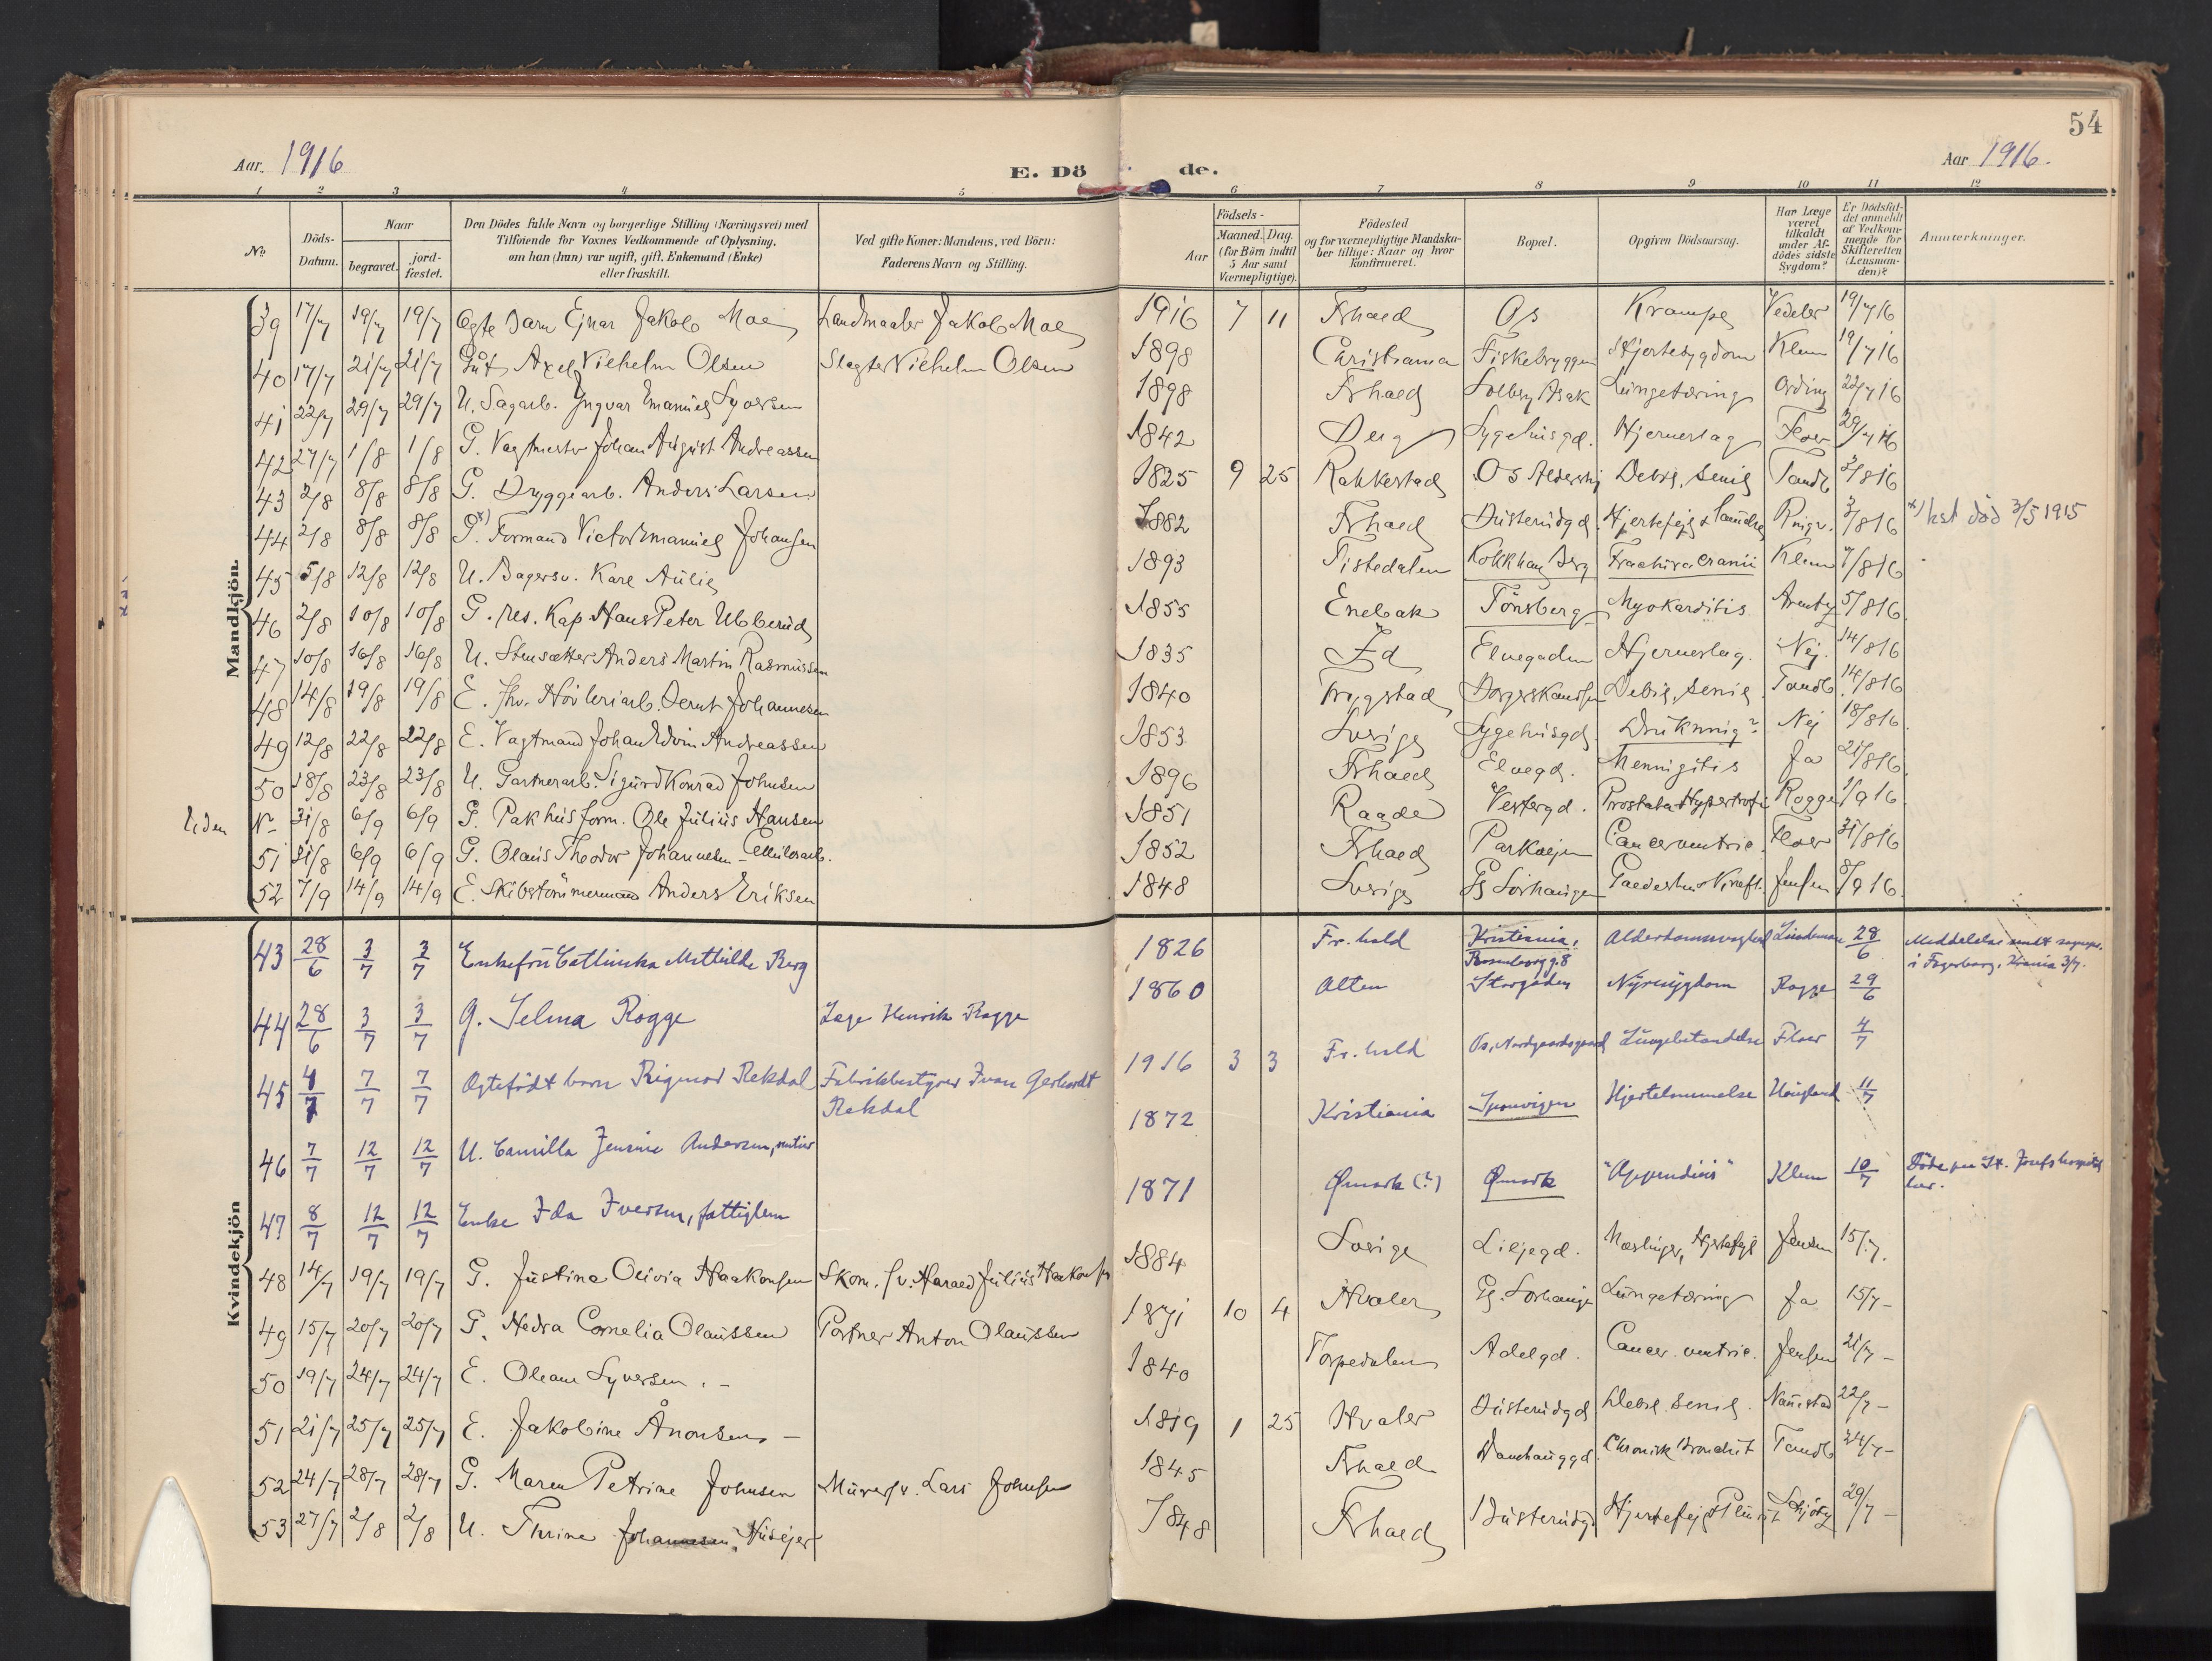 54
Aar. 1916
E. Dö
de.
Aar 1916.
1 2 3 4 5 6 7 8 9 10 11 12
No
Döds-Datum.
Naar
begravet.
jord-fæstet.
Den Dödes fulde Navn og borgerlige Stilling (Næringsvei) med
Tilföiende for Voxnes Vedkommende af Oplysning,
om han (hun) var ugift, gift, Enkemand (Enke)
eller fraskilt.
Ved gifte Koner: Mandens, ved Börn:
Faderens Navn og Stilling.
Födsels-
Aar
Maaned. Dag.
(for Börn indtil
5 Aar samt
Værnepligtige).
Födested
og for værnepligtige Mandska-
ber tillige: Naar og hvor
konfirmeret.
Bopæl.
Opgiven Dödsaarsag.
Har Læge
været
tilkaldt
under Af-
dödes sidste
Sygdom?
Er Dödsfal-
det anmeldt
af Vedkom-
mende for
Skifteretten
(Lensman-
den)?
Anmærkninger.
Mandkjön.
39 17/7 19/7 19/7 Ægte Barn Ejnar Jakob Moe Landmaaler Jakob Moe 1916 7 11 Frhald Os Krampe Vedeler 19/7 16
40 17/7 21/7 21/7 Gut Axel Vilhelm Olsen Slagter Vilhelm Olsen 1898 Christiania Fiskebryggen Hjertesygdom Klem 19/7 16
41 22/7 29/7 29/7 U. Sagarb. Yngvar Emanuel Syversen 1898 Frhald Solberg Asak Lungetæring Ording 22/7 16
42 27/7 1/8 1/8 G. Vagtmester Johan August Andreassen 1842 Berg Sygehusgd. Hjerneslag Floer 29/7 16
43 2/8 8/8 8/8 G. Bryggearb. Anders Larsen 1825 9 25 Rakkestad Os Aldershj Debil. senil Tandb 3/8 16
44 2/8 8/8 8/8 G. x) Formand Victor Emanuel Johansen 1882 Frhald Busterudgd. Hjertefejl 3/8 16 x) hst död 3/5 1915
45 5/8 12/8 12/8 U. Bagersv. Karl Aulie 1893 Tistedalen Kokkhaug Berg Fractura cranii Klem 7/8 16
46 2/8 10/8 10/8 G. res. Kap Hans Peter Ulleruds 1855 Enebak Tönsberg Myokarditis 5/8 16
47 10/8 16/8 16/8 U. Stensætter Anders Martin Rasmussen 1835 Id Elvegaden Hjerneslag. Nej. 14/8 16
48 14/8 19/8 19/8 E. fhv. Hövleriarb. Bernt Johannesen 1840 Trygstad Debil. senil Tandb 14/8 16
49 12/8 22/8 22/8 E. Vagtmand Johan Edvin Andreassen 1853 Sverige Sygehusgd. Drukning? Nej 18/8 16
50 18/8 23/8 23/8 U. Gartnerarb. Sigurd Konrad Johnsen 1896 Frhald Elvegd. Meningitis Ja 21/8 16
Uden No 31/8 6/9 6/9 G. Pakhusform. Ole Julius Hansen 1851 Raade Vestergd. Prostata Hypertrofi Rogge 1/9 16
51 31/8 6/9 6/9 G. Olaus Theodor Johannesen - Cellulosearb. 1852 Frhald Parkvejen Cancer ventric. Floer 31/8 16
52 7/9 14/9 14/9 E. Skibstömmermand Anders Eriksen 1848 Sverige Gl Sörhaugen Jensen 8/9 16
Kvindekjön
43 28/6 3/7 3/7 Enkefru Cathinka Mathilde Berg 1826 Fr.hald Kristiania, Alderdomssvaghed Lindeman 28/6 Meddelelse sendt sognepr.
Rosenborgg. 8 i Fagerborg, Krania 3/7.
44 28/6 3/7 3/7 G. Selma Rogge Læge Henrik Rogge 1860 Alten Storgaden Nyresygdom Rogge 29/6
45 4/7 7/7 7/7 Ægtefödt barn Rigmor Rekdal Fabrikbestyrer Ivan Gerhardt
Rekdal 1916 3 3 Fr.hald Os, Nordgaardsgaard Lungebetændelse Floer 4/7
46 7/7 12/7 12/7 U. Camilla Jensine Andersen, rentier 1872 Kristiania Sponvigen Hjertelammelse Haugland 11/7
47 8/7 12/7 12/7 Enke Ida Iversen, fattiglem 1871 Ømark (?) Ømark "Appendicis" Klem 10/7 Döde paa St. Josefs hospital
her.
48 14/7 19/7 19/7 G. Justina Olivia Haakonsen Skom. sv. Harald Julius Haakonsen 1884 Sverige Liljegd. Mæslinger, Hjertefejl Jensen 15/7.
49 15/7 20/7 20/7 G. Hedva Cornelia Olaussen Portner Anton Olaussen 1871 10 4 Hvaler Gl. Sörhaugen Lungetæring Ja 15/7 -
50 19/7 24/7 24/7 E. Oleane Syversen. - 1840 Torpedalen Adelgd. Cancer ventric. Jensen 21/7 -
51 21/7 25/7 25/7 E. Jakobine Ånonsen - 1819 1 25 Hvaler Busterudgd Debil. senil. Naustad 22/7 -
52 24/7 28/7 28/7 G. Maren Petrine Johnsen Murersv. Lars Johnsen 1845 Frhald Danckauggd. Chronisk Bronchit Tandb 24/7 -
53 27/7 2/8 2/8 U. Thrine Johannesen, Husejer 1848 Frhald Busterudgd Hjertefejl & Pleurit 29/7 -